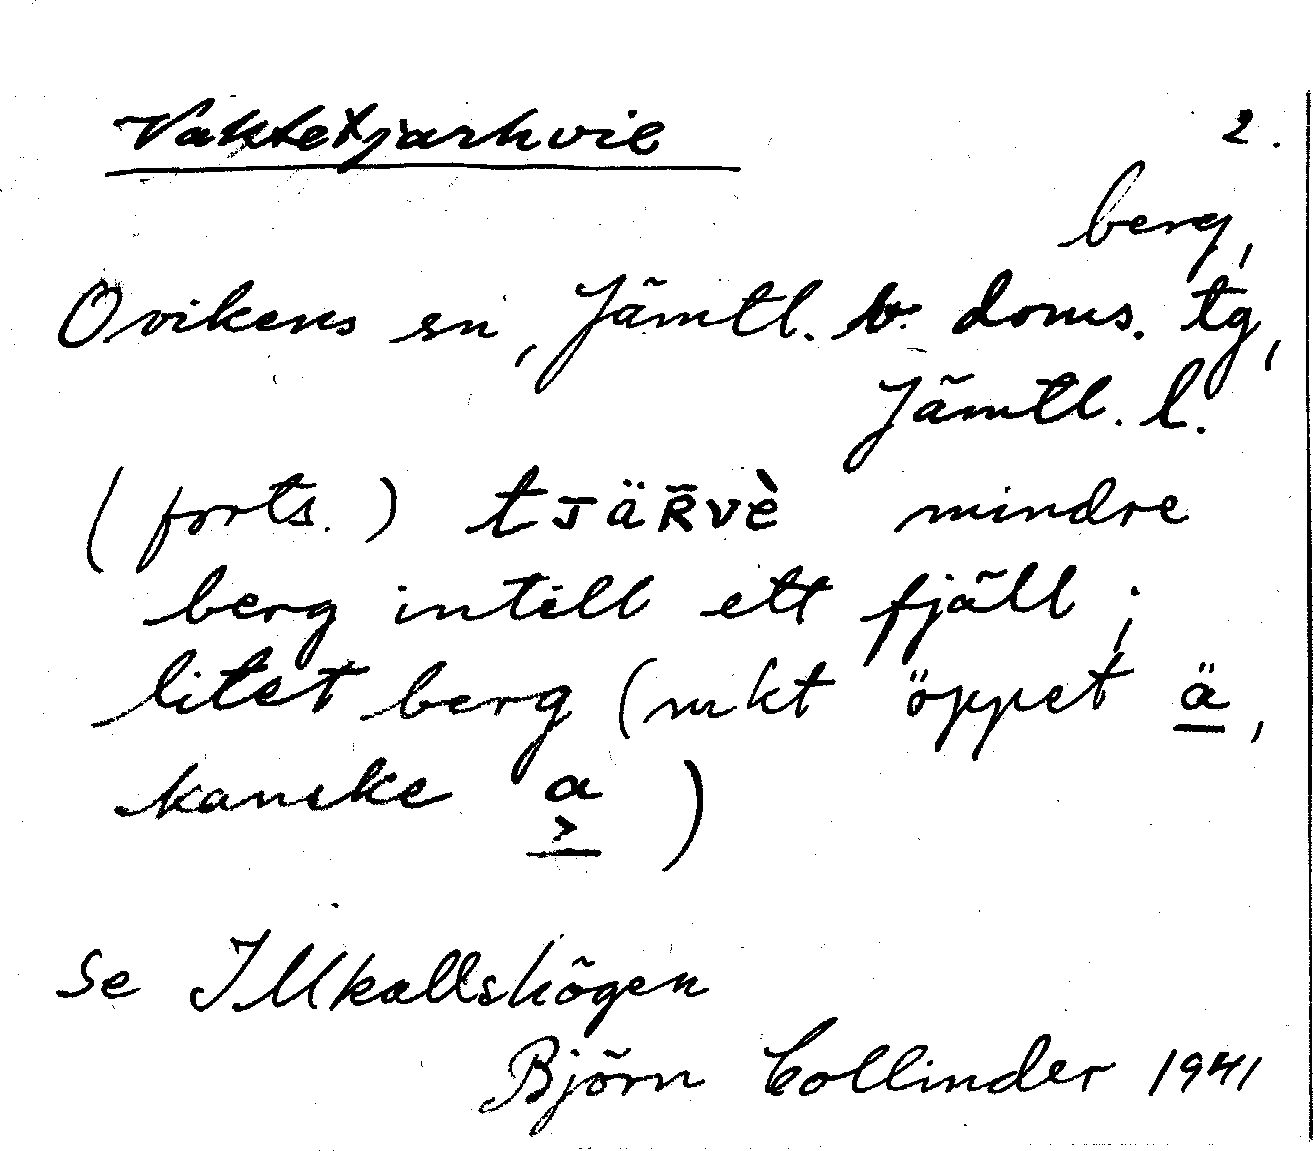 Vaktetjarhvie 2.
berg,
Ovikens sn, Jämtl. v. doms. tg,
Jämtl. l.
(forts.) tJäR̄vè mindre
berg intill ett fjäll;
litet berg (mkt öppet ä,
kanske a )
Se Illkallshögen
Björn Collinder 1941